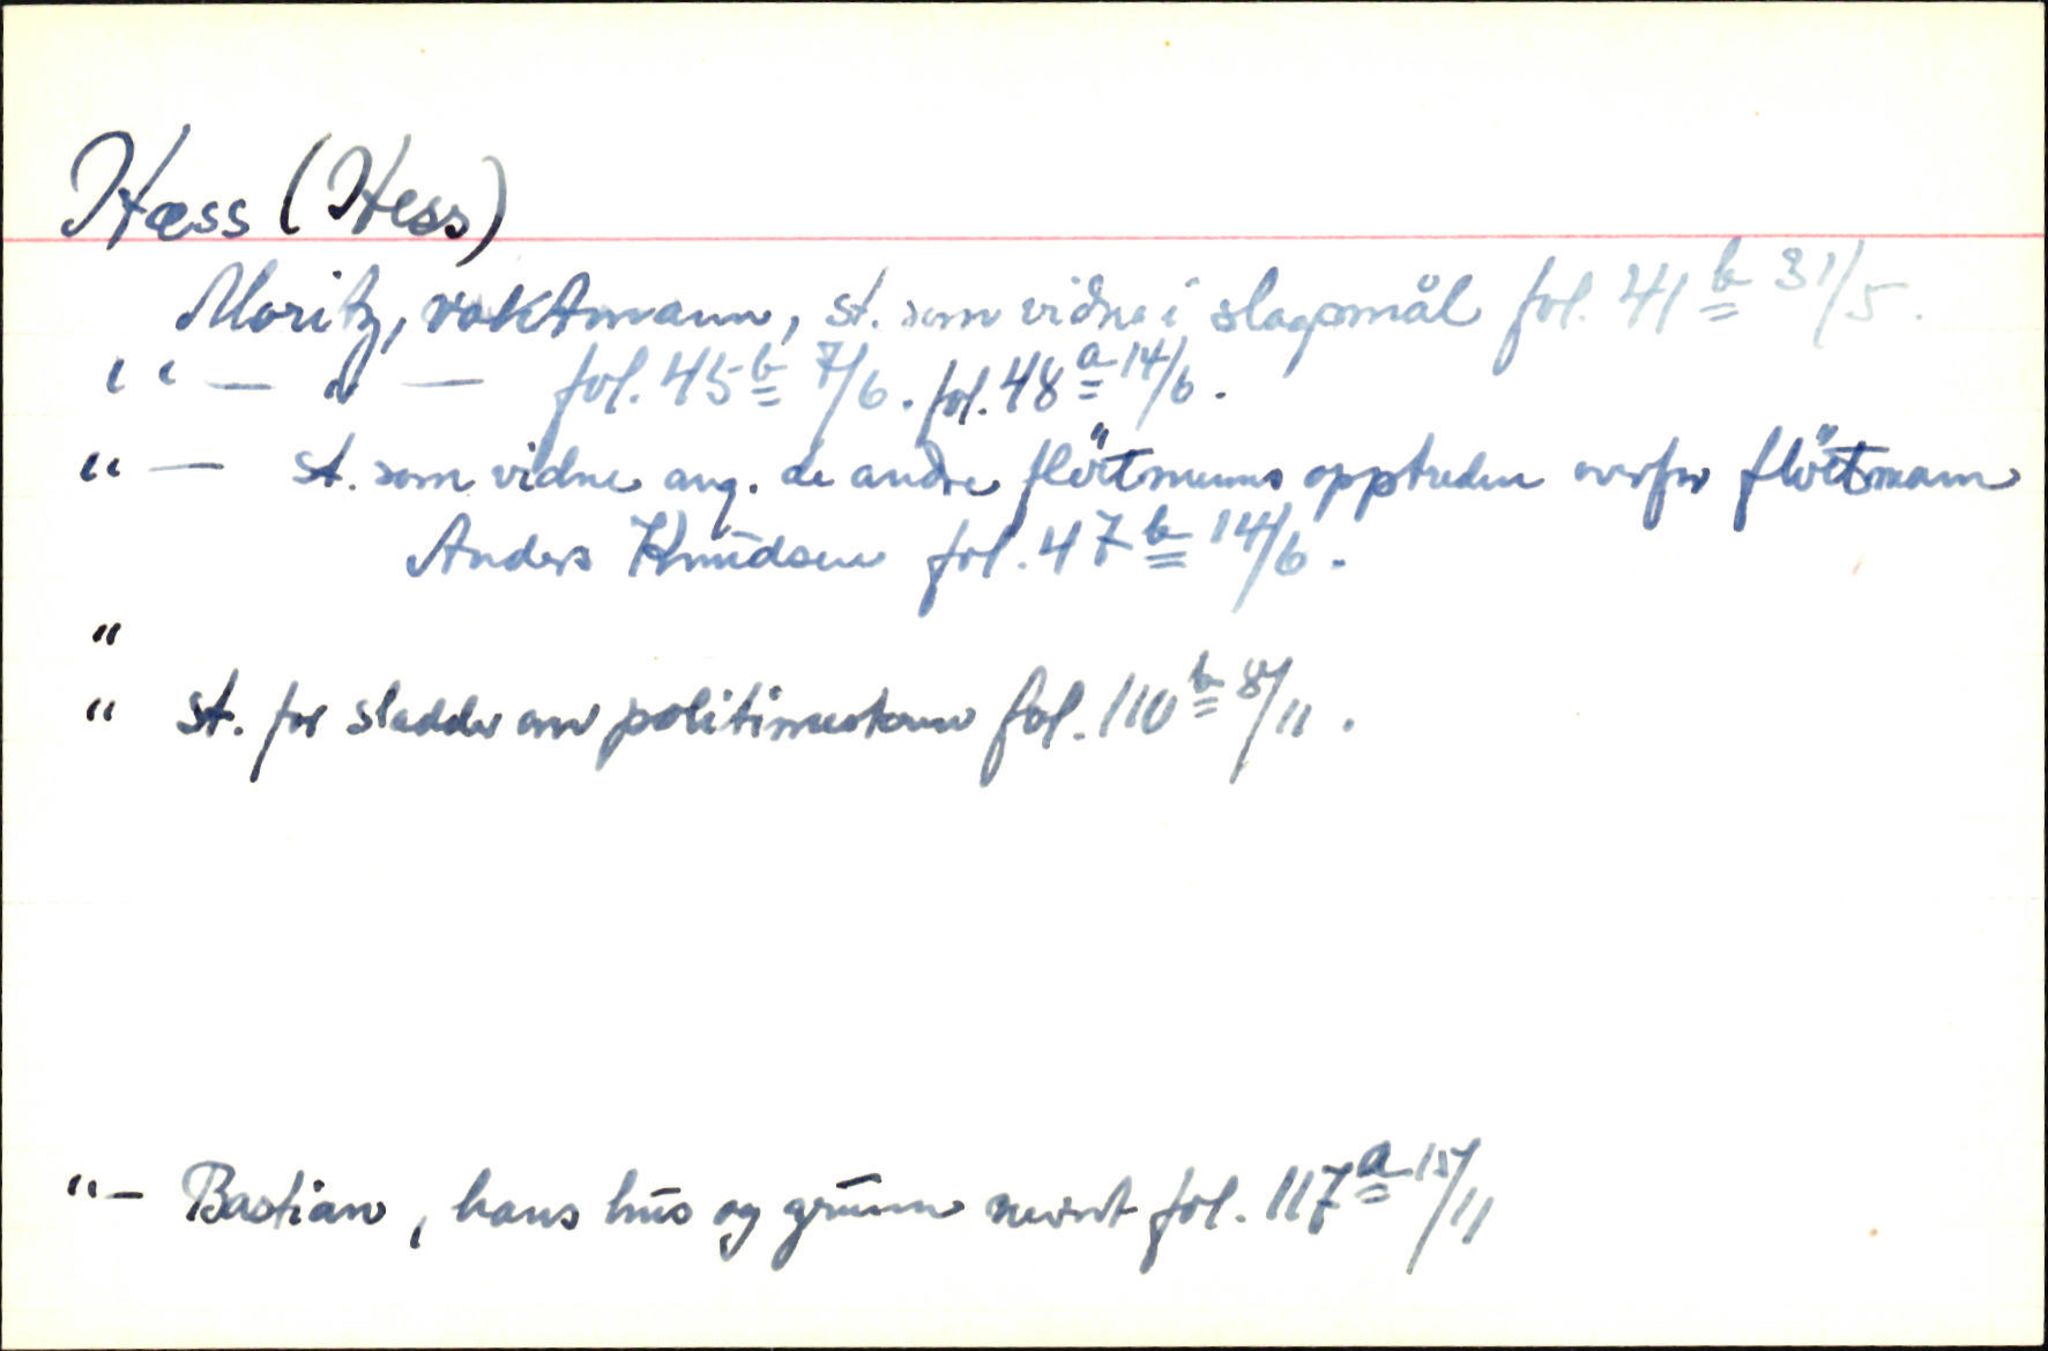 Hæss (Hess)
Moritz, vaktmann, st. som vidne i slagsmål fol. 41 b 31/5.
" — " — fol. 45 b 7/6. fol. 48 a 14/6.
" — st. som vidne ang. de andre fløtmenns opptreden overfor fløtmann
Anders Knudsen fol. 47 b 14/6.
"
" st. for sladder om politimesteren fol. 110 b 8/11.
" — Bastian, hans hus og grunn nevnt fol. 117 a 15/11